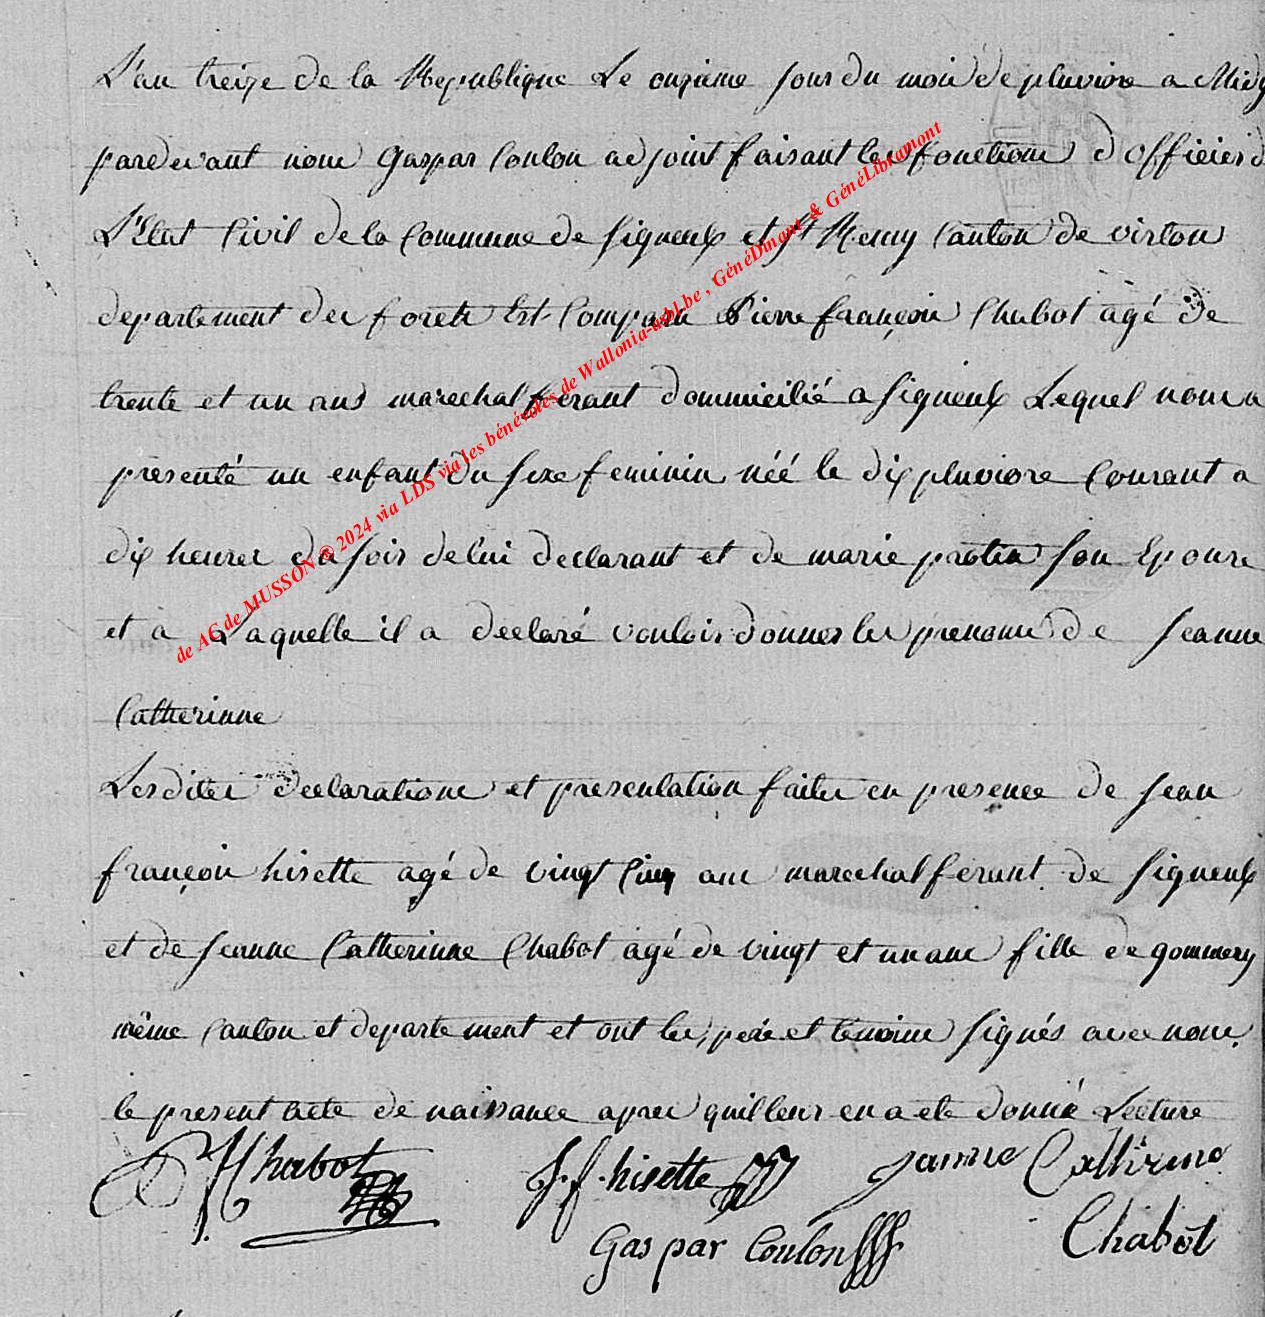 L'an treize de la Republique Le onzieme jour du mois de pluviose a Midy
pardevant nous Gaspar Coulon adjoint faisant les fonctions d'officier d
L'Etat Civil de la Commune de Signeulx et St Remy Canton de virton
departement des forets Est Comparu Pierre françois Chabot agé de
trente et un ans marechal ferant dommicilié a Signeulx Lequel nous a
presenté un enfant du sexe feminin néé le dix pluviose Courant a
dix heures du soir de lui declarant et de marie protin son Epouse
et a Laquelle il a declaré vouloir donner les prenoms de Jeanne
Catherinne
Lesdites declarations et presentation faites en presence de Jean
françois hisette agé de vingt Cinq ans marechal ferant de Signeulx
et de Jeanne Catherinne Chabot agé de vingt et un ans fille de gommery
même Canton et departement et ont les pere et temoins signés avec nous
le present acte de naissance apres quilleur en a ete donné Lecture
P F Chabot J. f. hisette Janne Catherine
Gaspar Coulon Chabot
de AC de MUSSON ® 2024 via LDS via les bénévoles de Wallonia-asbl.be , GénéDinant & GénéLibramont